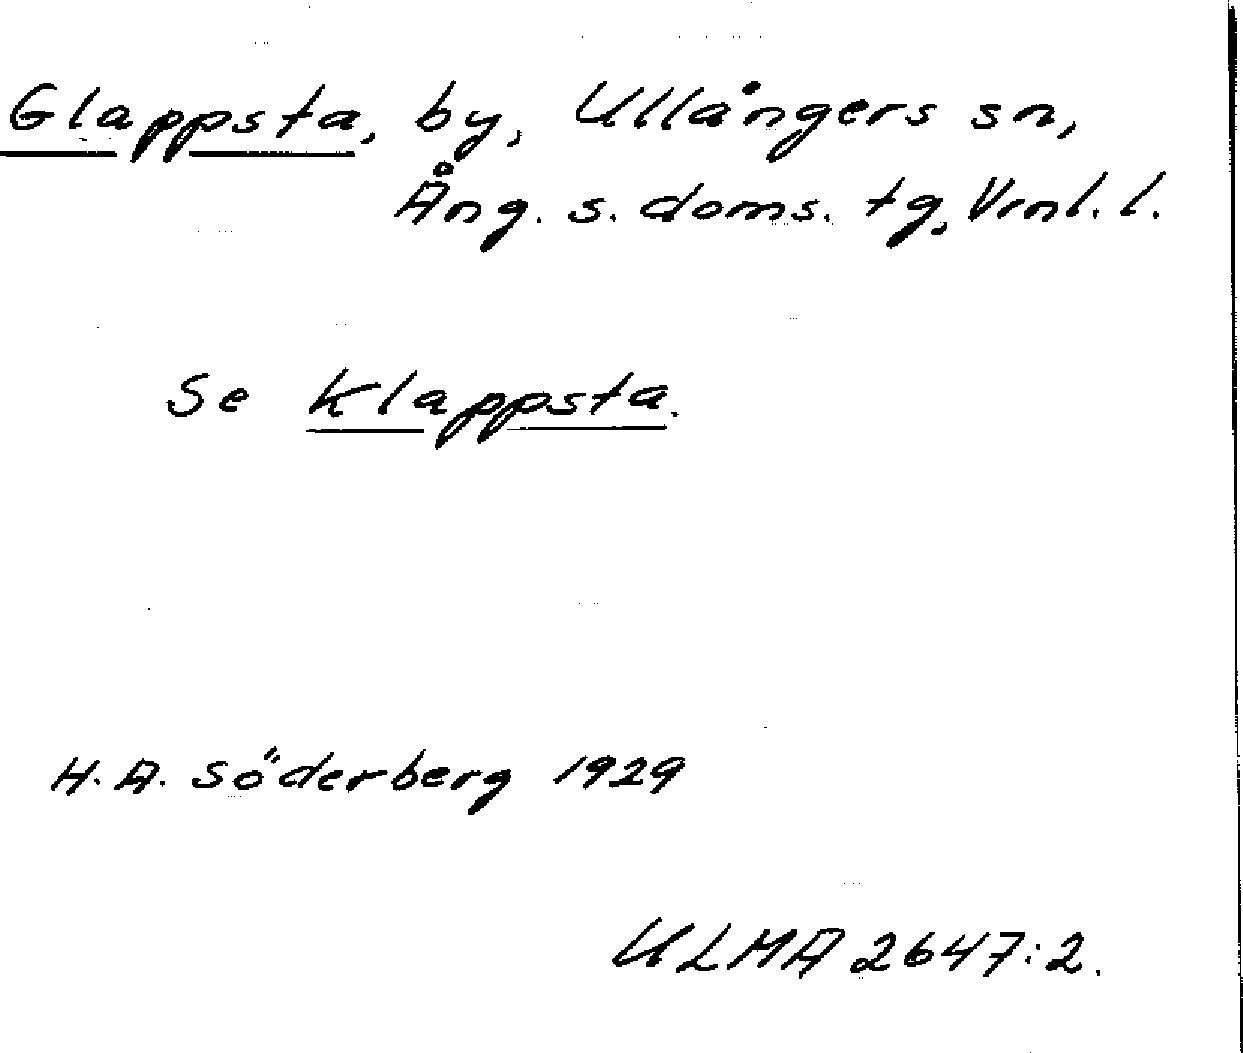 Glappsta, by, Ullångers sn,
Ång. s. doms. tg, Vrnl. l.
Se Klappsta.
H. A. Söderberg 1929
ULMA 2647:2.